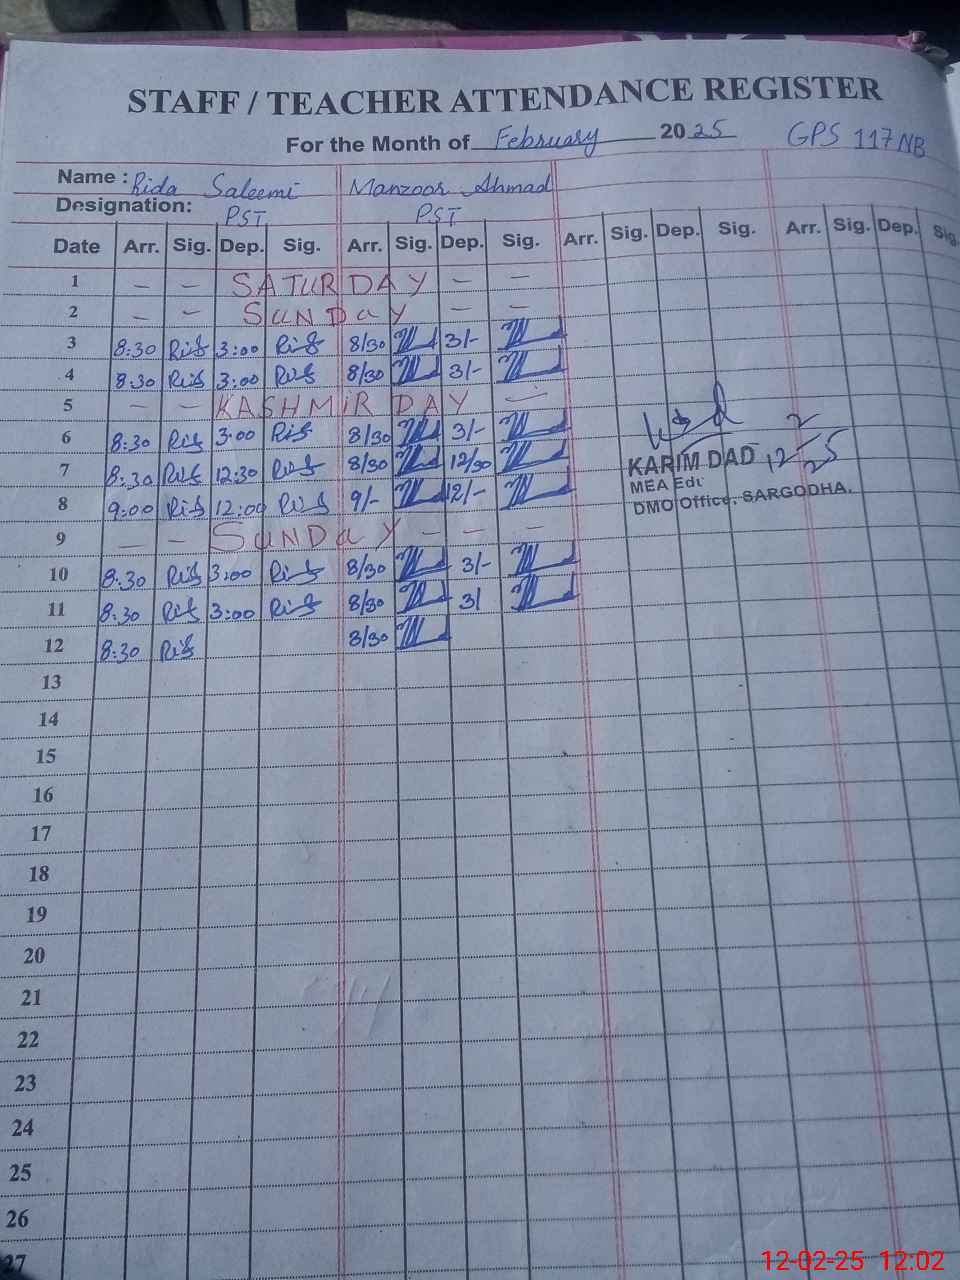 STAFF / TEACHER ATTENDANCE REGISTER
For the Month of February 2025 GPS 117 NB
Name : Rida Saleemi Manzoor Ahmad
Designation: PST PST
Date Arr. Sig. Dep. Sig. Arr. Sig. Dep. Sig. Arr. Sig. Dep. Sig. Arr. Sig. Dep. Sig.
1 — — SATURDAY — —
2 — — SUNDAY — —
3 8:30 3:00 8/30 3/-
4 8:30 3:00 8/30 3/-
5 — — KASHMIR DAY —
6 8:30 3:00 8/30 3/-
7 8:30 12:30 8/30 12/30
8 9:00 12:00 9/- 12/-
9 — — SUNDAY — — —
10 8:30 3:00 8/30 3/-
11 8:30 3:00 8/30 3/
12 8:30 8/30
KARIM DAD 12/2/25
MEA Edu
DMO Office, SARGODHA.
13
14
15
16
17
18
19
20
21
22
23
24
25
26
27
12-02-25 12:02